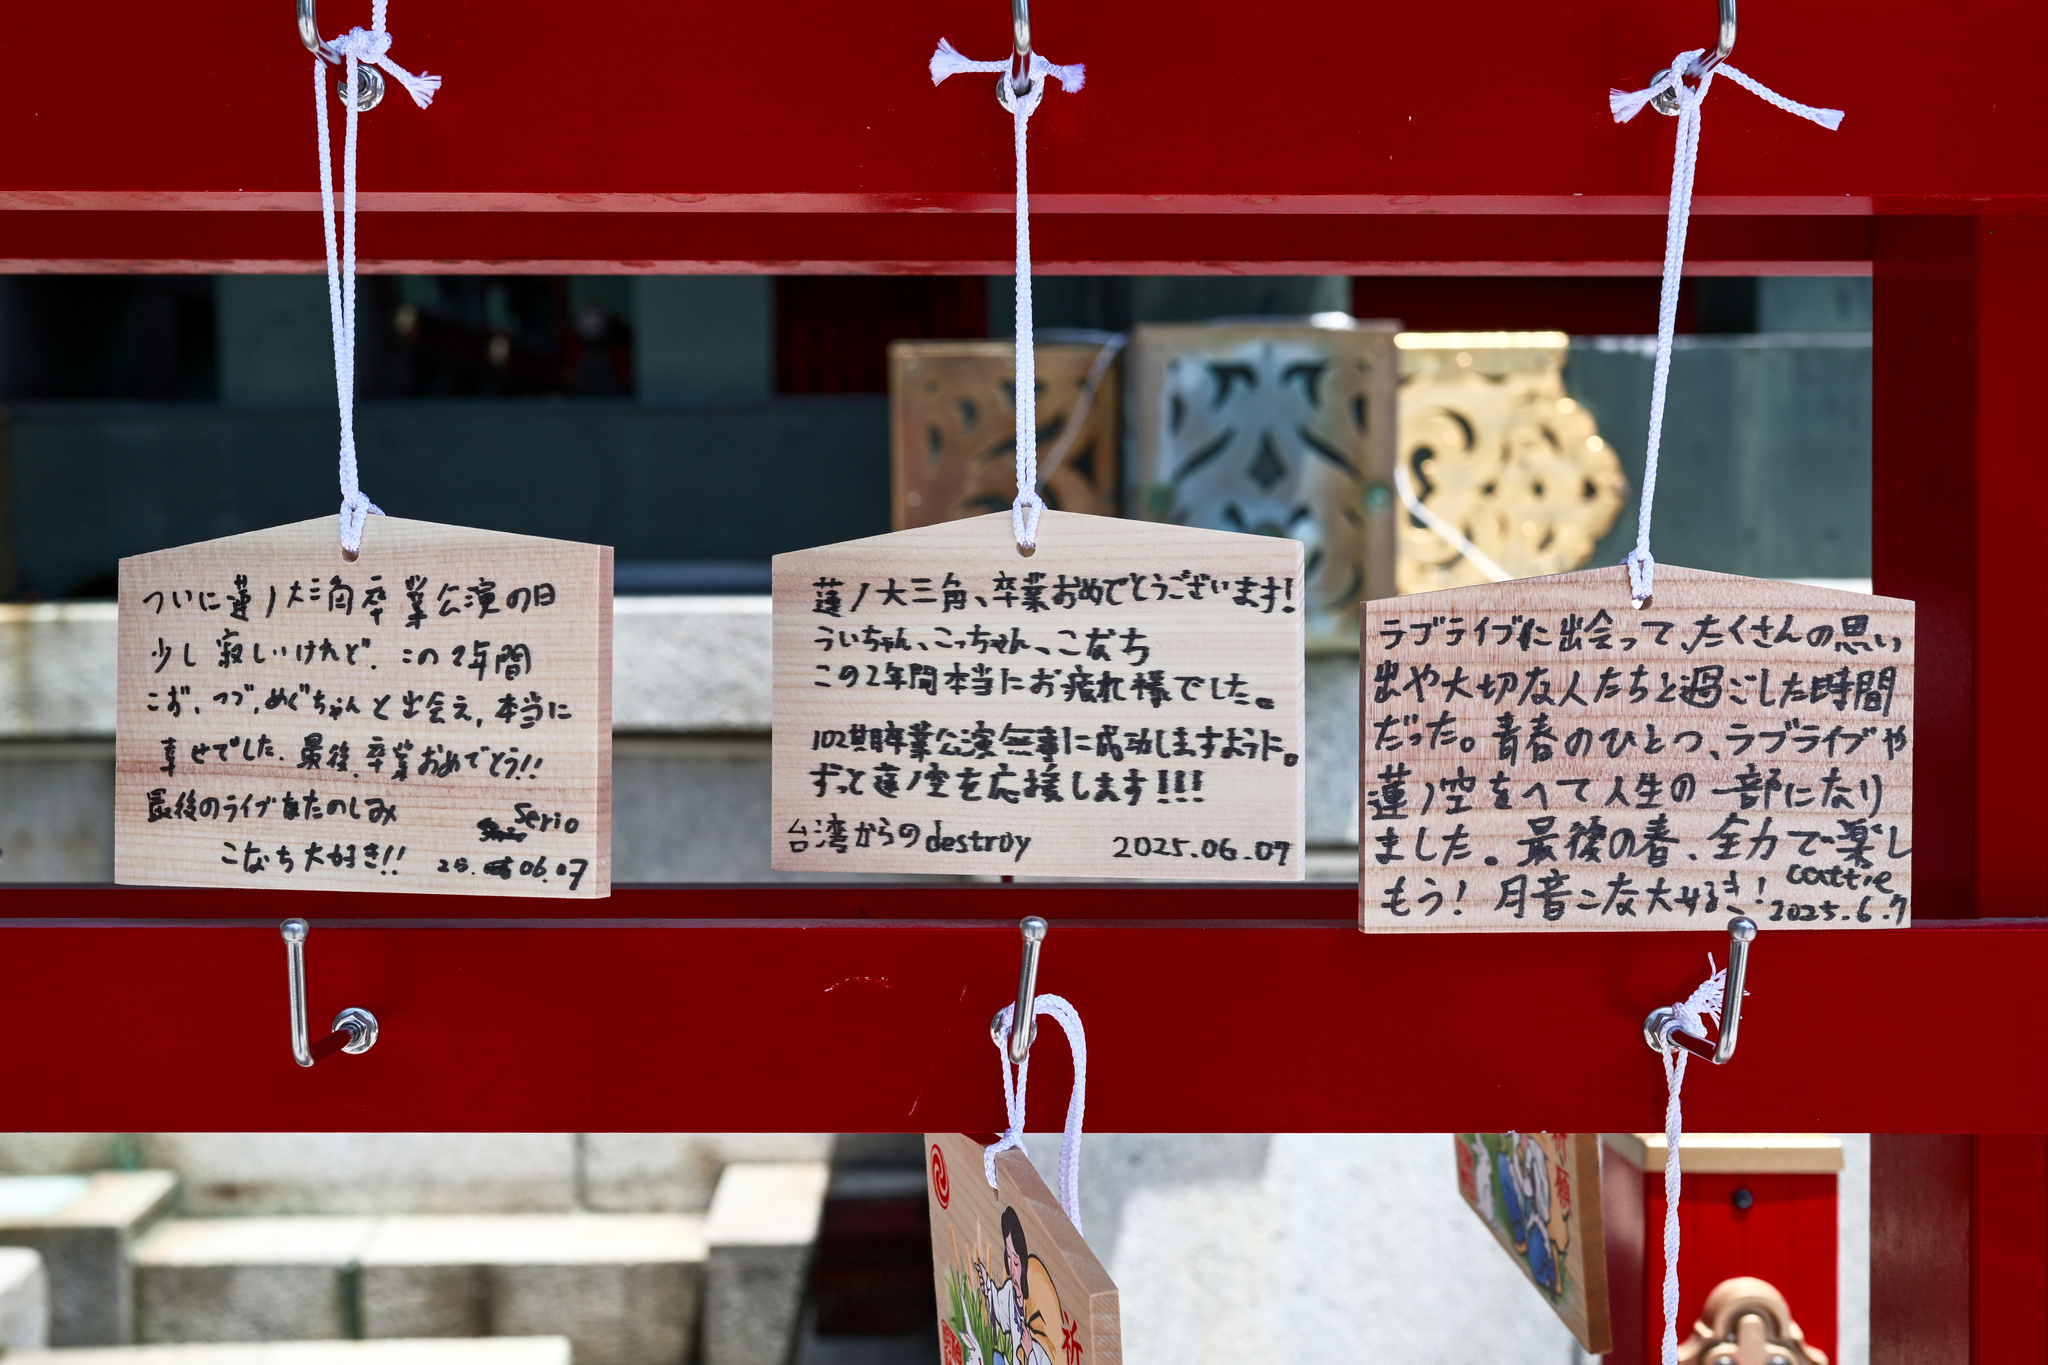 ついに蓮ノ大三角卒業公演の日
少し寂しいけれど、この2年間
こず、つづ、めぐちゃんと出会え、本当に
幸せでした。最後、卒業おめでとう!!
最後のライブまたのしみ
Serio
こなち大好き!!
25. 06.07
蓮ノ大三角、卒業おめでとうございます!
ういちゃん、こっちゃん、こなち
この2年間本当にお疲れ様でした。
102期卒業公演無事に成功しますように。
ずっと蓮ノ空を応援します!!!
台湾からのdestroy
2025.06.07
ラブライブに出会って、たくさんの思い
出や大切な人たちと過ごした時間
だった。青春のひとつ、ラブライブや
蓮ノ空をへて人生の一部になり
ました。最後の春、全力で楽し
もう! 月音こな大好き!
cattie
2025.6.7
祈
祈願